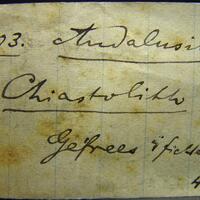 03. Andalusi
Chiastolith
Gefrees i/ Fichte
4